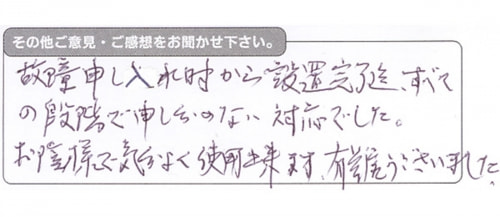 その他ご意見・ご感想をお聞かせ下さい。
故障申し入れ時から設置完了迄、すべて
の段階で申し分のない対応でした。
お陰様で気分よく使用出来ます、有難うございました。